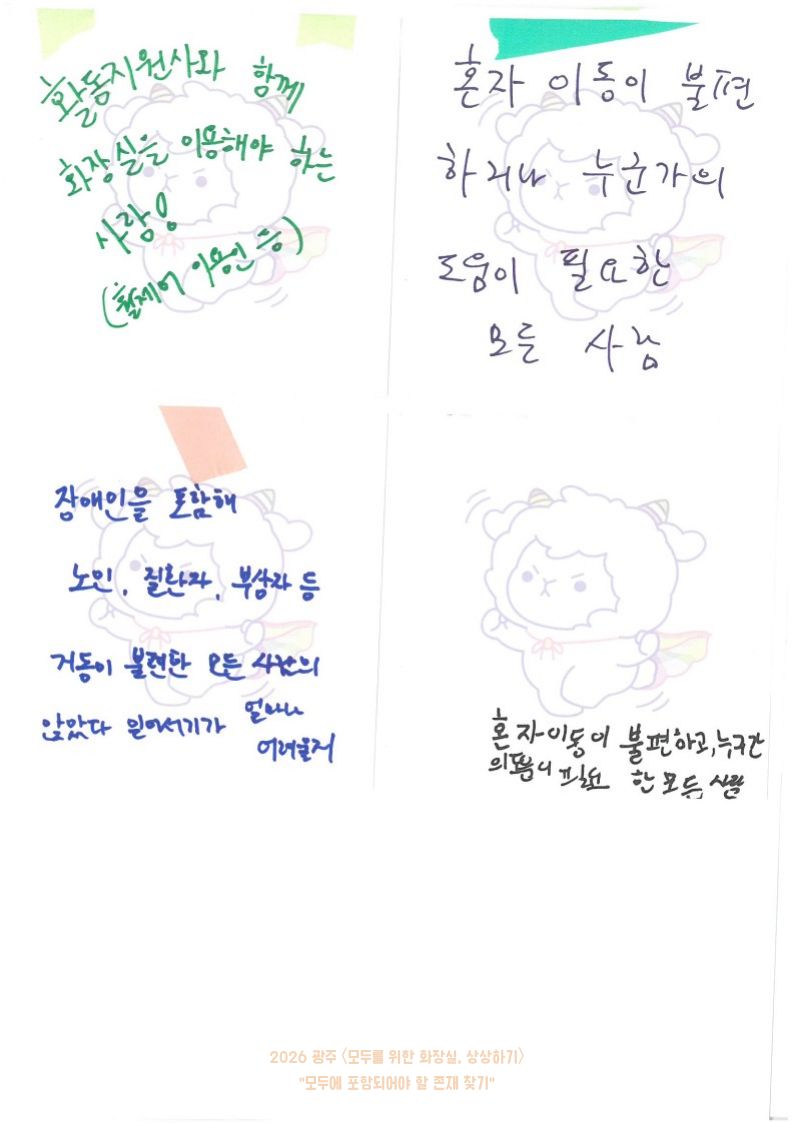 활동지원사와 함께
화장실을 이용해야 하는
사람!
(휠체어 이용인 등)
혼자 이동이 불편
하거나 누군가의
도움이 필요한
모든 사람
장애인을 포함해
노인, 질환자, 부상자 등
거동이 불편한 모든 사람의
앉았다 일어서기가 얼마나
어려울지
혼자이동이 불편하고, 누군가
의도움이 필요한 모든 사람
2026 광주 <모두를 위한 화장실, 상상하기>
"모두에 포함되어야 할 존재 찾기"